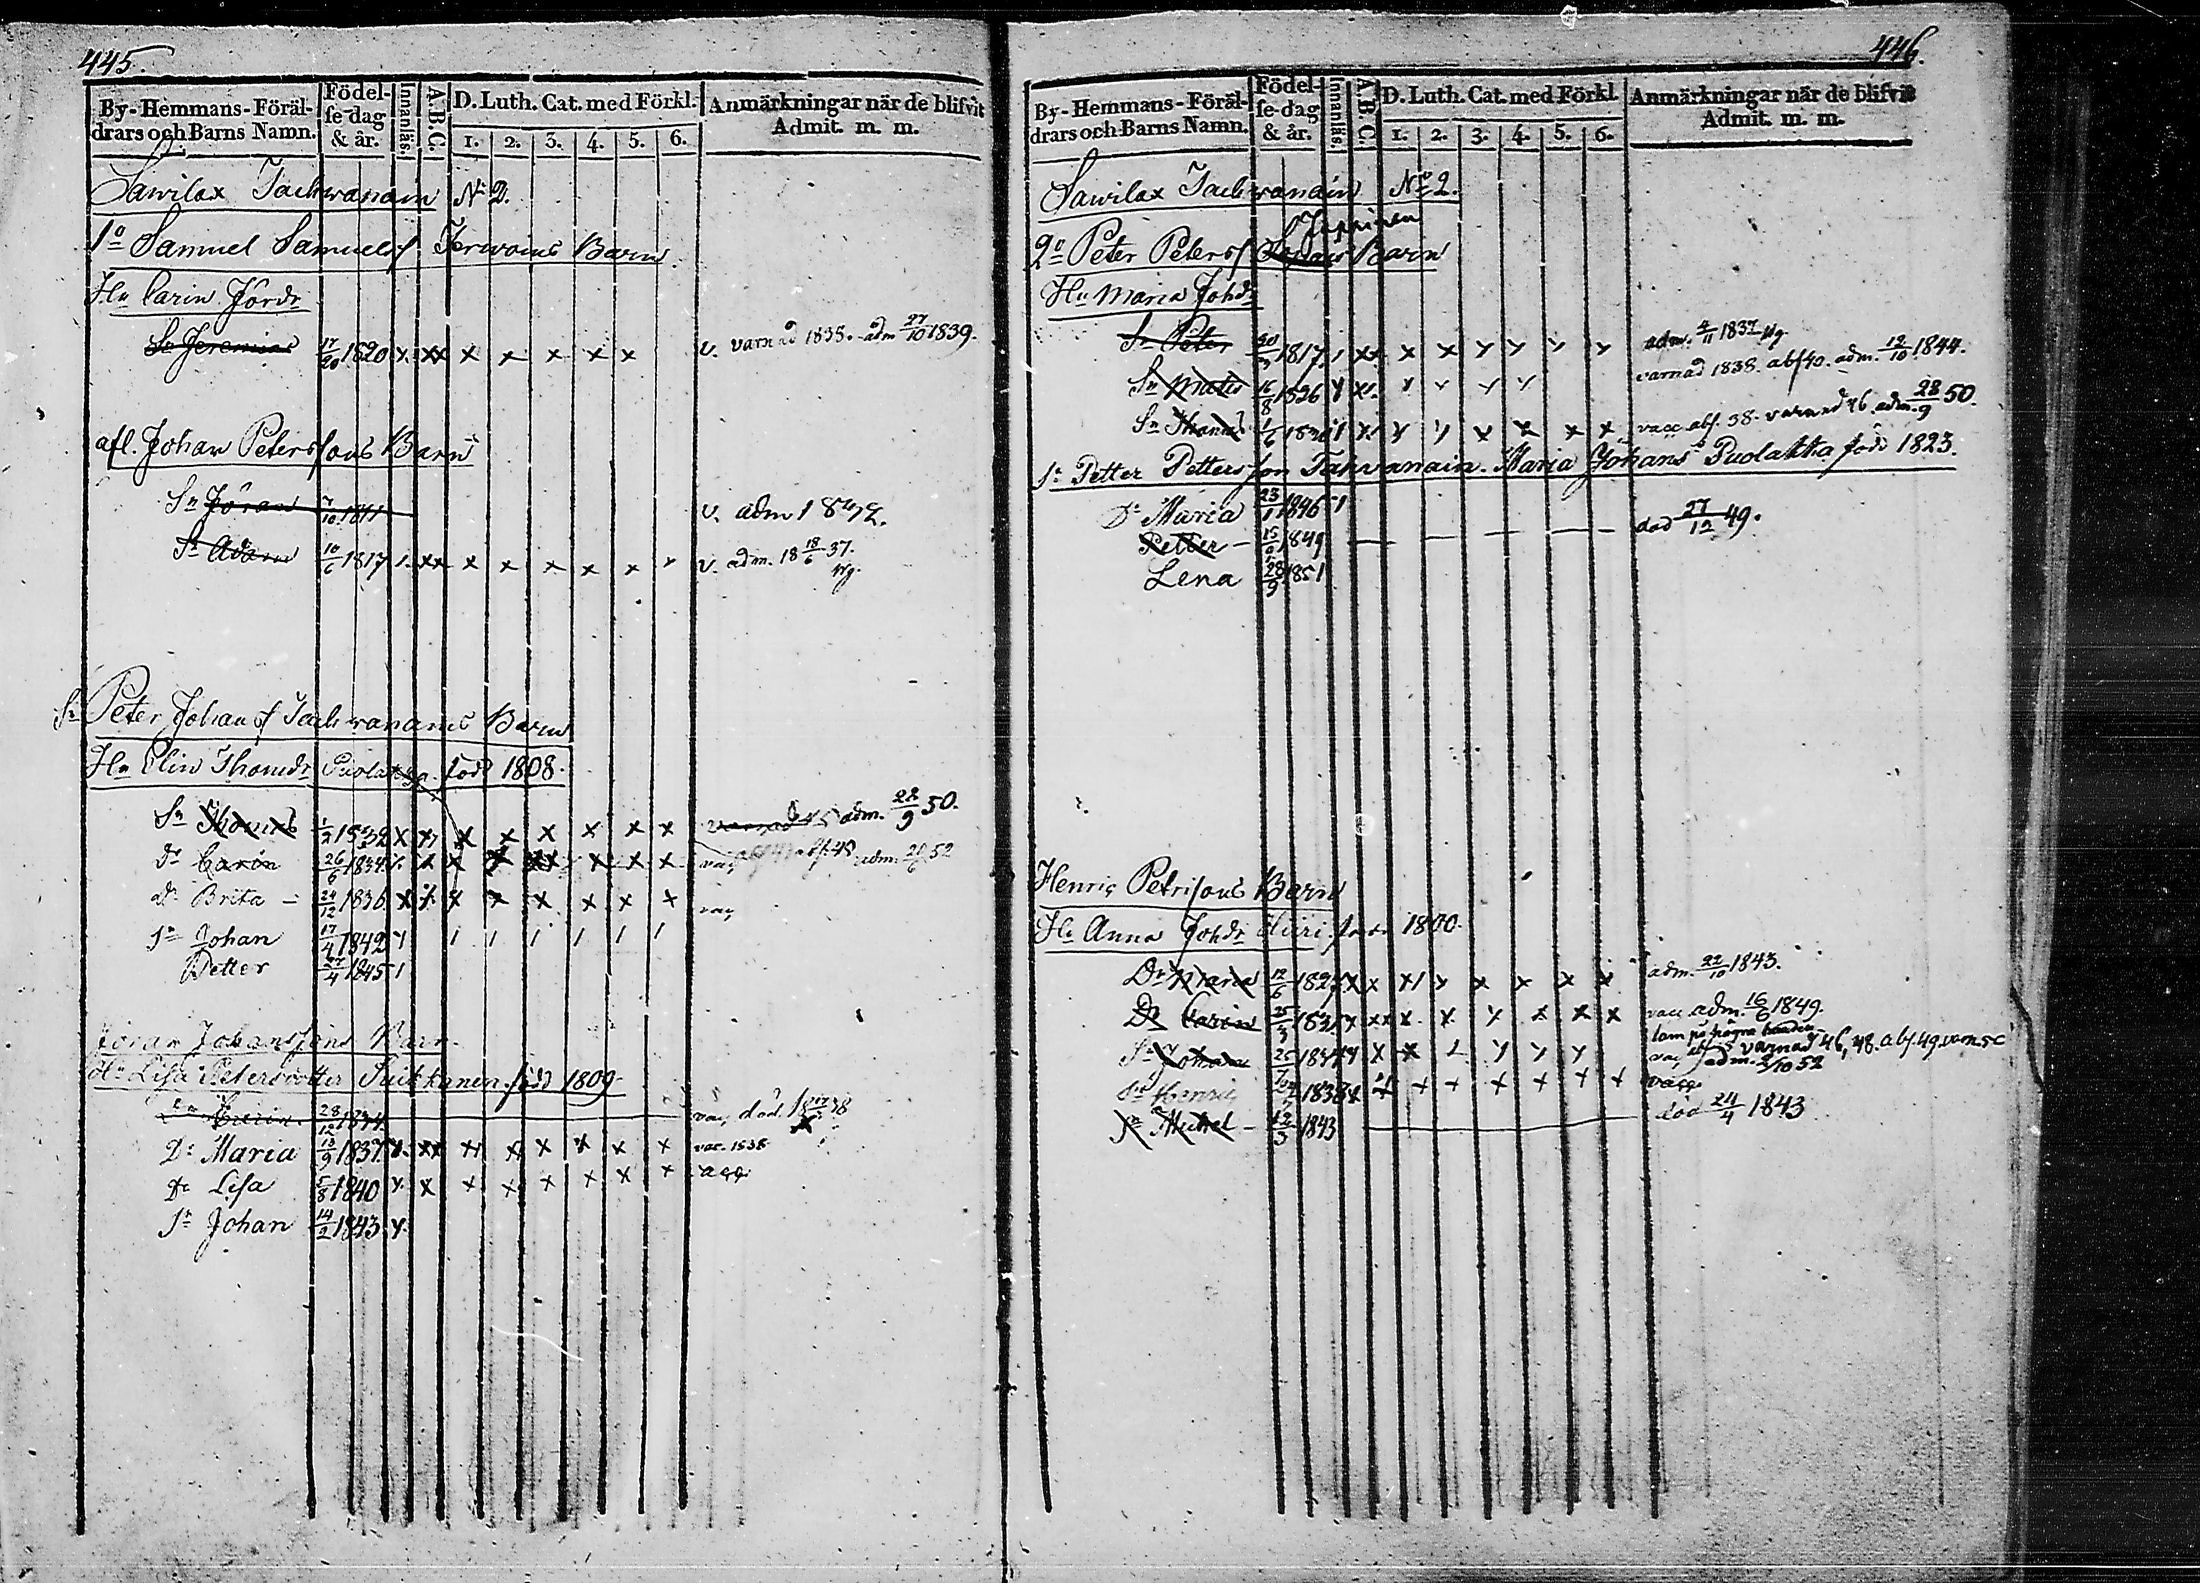 445.
By-Hemmans-Föräl-
drars och Barns Namn.
Födel-
se-dag
& år.
Innanläs.
A.B.C.
D. Luth. Cat. med Förkl.
1. 2. 3. 4. 5. 6.
Anmärkningar när de blifvit
Admit. m. m.
Sawilax Tachwanain No 2.
1o Samuel Samuelsf Barn
Hu Carin Jördr
Sn Jeremias 17/20 1820 x xx x x x x x v. varnad 1838. adm 27/10 1839.
afl. Johan Peterssons Barn
Sn Jöran 7/10 1811 v. adm 1842.
Sn Adam 10/6 1817 1. xx x x x x x x v. adm. 18 18/6 37.
Wg.
Sn Peter Johansf Tachwanains Barn
Hu Elin Thomdr Puolakka född 1808.
Sn Thomas 1/2 1832 x x x x x x x x varnad 45 adm. 22/9 50.
Dr Carin 26/6 1834 x x x x x x x x
dr Brita 24/12 1836 x x x x x x x x vac
Sn Johan 17/4 1842 y 1 1 1 1 1 1
Petter 27/4 1845 1
Jöran Johanssons Barn
Hu Lisa Petersdotter född 1809
28/12 1834 vac död
Dr Maria 13/9 1837 x xx x x x x x x vac. 1838
Dr Lisa 5/8 1840 x x x x x x x x
Sn Johan 14/2 1843 x
446.
By-Hemmans-Föräl-
drars och Barns Namn.
Födel-
se-dag
& år.
Innanläs.
A.B.C.
D. Luth. Cat. med Förkl.
1. 2. 3. 4. 5. 6.
Anmärkningar när de blifvit
Admit. m. m.
Sawilax Tachwanain No 2.
2o Peter Petersf Barn
Hu Maria Johdr
Sn Peter 1817 1 xx x x y y y y adm. 4/11 1837 Wg
Sn Mats 16/8 1826 y xx y y y y varnad 1838. abs 40. adm. 12/10 1844.
Sn Thomas 1/6 x x y x x x x vacc abs. 38. varnad 46. adm. 28/9 50.
Sn Petter Pettersson Tahvanain. Maria Johans Puolakka född 1823.
Dr Maria 23/1 1846 1
Petter 1849 död 27/12 49.
Lena 28/9 1851
Henric Petrissons Barn
Hu Anna Johdr född 1800.
Dr Maria 12/6 1827 x x x1 y x x x x adm. 22/10 1843.
Dr Carin x xx x x y x x x vacc adm. 16/6 1849.
lam på högra handen
Sn Johan x x y y y vac varnad 46, 48. abs. 49
adm. 2/10 52
Sn Henric 1838 x x x x x x x x vacc.
Sn Mickel 1843 död 24/4 1843